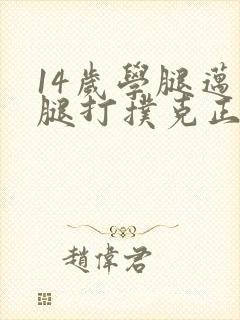 14歲學腿邁
腿打撲克正
趙偉君